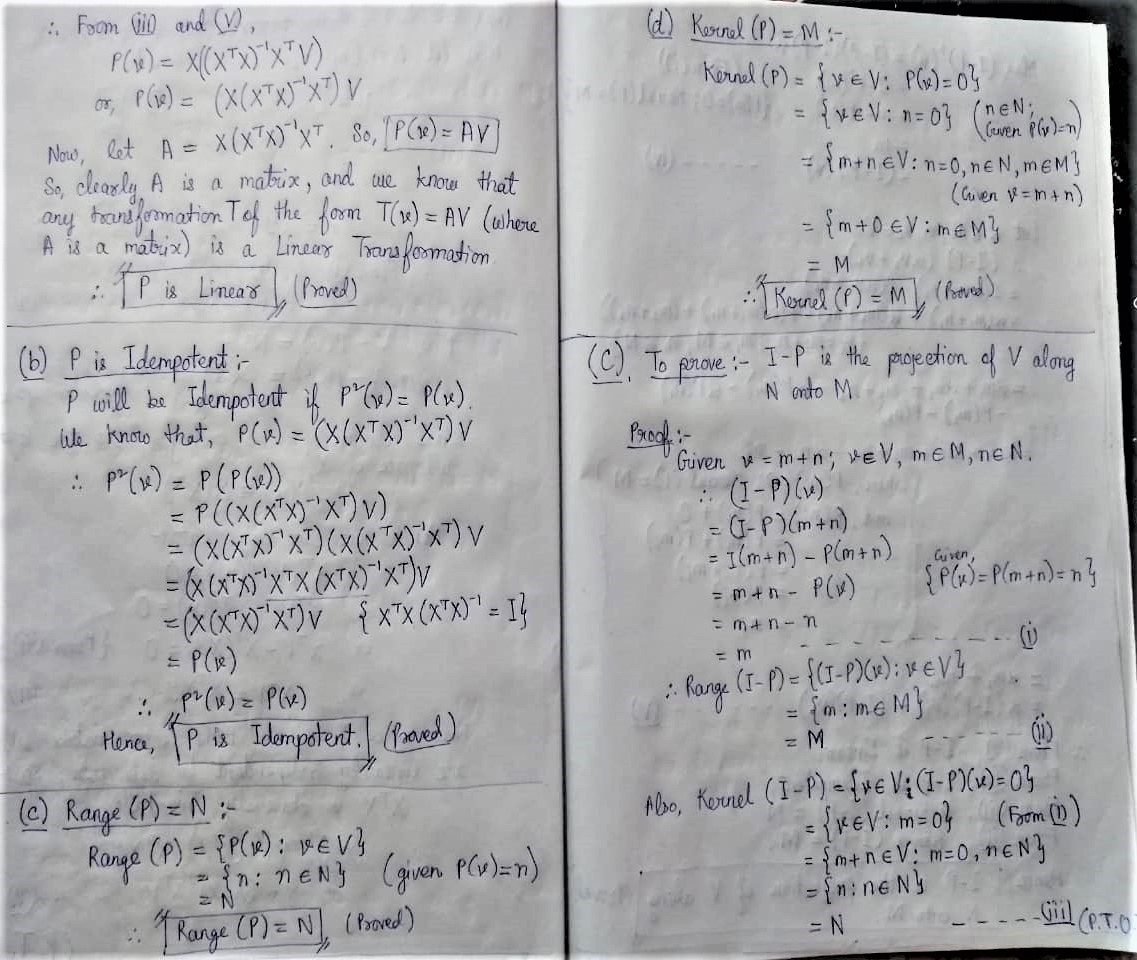 ∴ From (iii) and (v),
P(v) = X((XᵀX)⁻¹Xᵀ V)
or, P(v) = (X(XᵀX)⁻¹Xᵀ) V
Now, let A = X(XᵀX)⁻¹Xᵀ. So, P(v) = AV
So, clearly A is a matrix, and we know that
any transformation T of the form T(v) = AV (where
A is a matrix) is a Linear Transformation
∴ P is Linear (Proved)
(b) P is Idempotent :-
P will be Idempotent if P²(v) = P(v).
We know that, P(v) = (X(XᵀX)⁻¹Xᵀ) V
∴ P²(v) = P(P(v))
= P((X(XᵀX)⁻¹Xᵀ) V)
= (X(XᵀX)⁻¹Xᵀ)(X(XᵀX)⁻¹Xᵀ) V
= (X(XᵀX)⁻¹XᵀX(XᵀX)⁻¹Xᵀ)V
= (X(XᵀX)⁻¹Xᵀ)V {XᵀX(XᵀX)⁻¹ = I}
= P(v)
∴ P²(v) = P(v)
Hence, P is Idempotent. (Proved)
(c) Range (P) = N :-
Range (P) = {P(v) : v ∈ V}
= {n : n ∈ N} (given P(v)=n)
= N
∴ Range (P) = N (Proved)
(d) Kernel (P) = M :-
Kernel (P) = {v ∈ V : P(v)=0}
= {v ∈ V : n=0} (n∈N;
Given P(v)=n)
= {m+n ∈ V : n=0, n∈N, m∈M}
(Given v=m+n)
= {m+0 ∈ V : m∈M}
= M
∴ Kernel (P) = M (Proved)
(C). To prove :- I-P is the projection of V along
N onto M
Proof :-
Given v = m+n ; v∈V, m∈M, n∈N.
∴ (I-P)(v)
= (I-P)(m+n)
= I(m+n) - P(m+n) Given,
= m+n - P(v) {P(v)=P(m+n)=n}
= m+n-n
= m - - - - - - - - - (i)
∴ Range (I-P) = {(I-P)(v) : v∈V}
= {m : m∈M}
= M - - - - - - (ii)
Also, Kernel (I-P) = {v∈V : (I-P)(v)=0}
= {v∈V : m=0} (From (i))
= {m+n∈V : m=0, n∈N}
= {n : n∈N}
= N - - - - - (iii) (P.T.O)